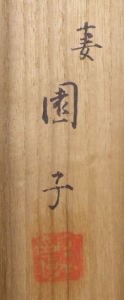 妻園子